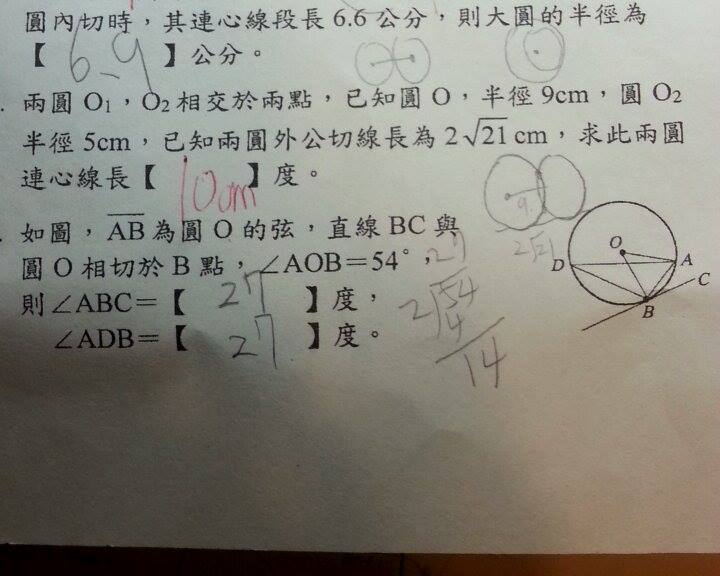 圓內切時，其連心線段長 6.6 公分，則大圓的半徑為
【 6-9 】公分。
兩圓 O₁，O₂ 相交於兩點，已知圓 O，半徑 9cm，圓 O₂
半徑 5cm，已知兩圓外公切線長為 2√21 cm，求此兩圓
連心線長【 10cm 】度。
9
2√21
如圖，AB 為圓 O 的弦，直線 BC 與
圓 O 相切於 B 點，∠AOB＝54°，
則∠ABC＝【 27 】度，
∠ADB＝【 27 】度。
27
2√54
4
14
O
D
A
C
B